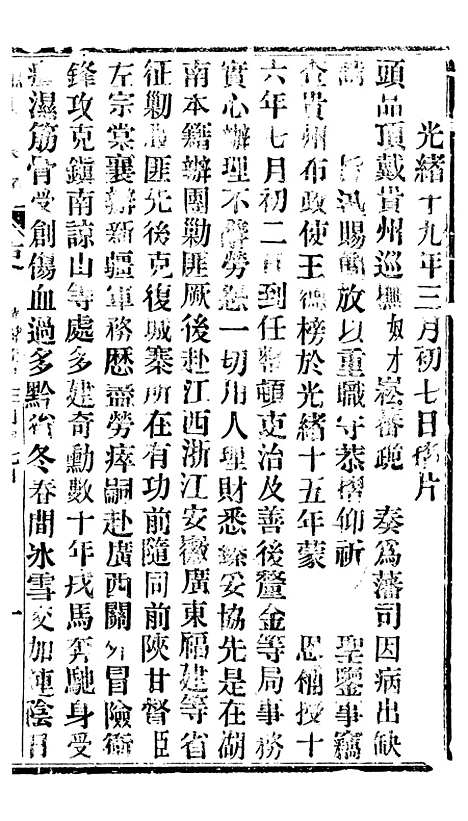 光緒十九年三月初七日 片
頭品頂戴貴州巡撫奴才崧蕃跪 奏為藩司因病出缺
請 旨迅賜簡放以重職守恭摺仰祈 聖鑒事竊
查貴州布政使王德榜於光緒十五年蒙 恩補授十
六年七月初二日到任整頓吏治及善後釐金等局事務
實心辦理不辭勞怨一切用人理財悉臻妥協先是在湖
南本籍辦團勦匪厥後赴江西浙江安徽廣東福建等省
征勦 匪先後克復城寨所在有功前隨同前陝甘督臣
左宗棠襄辦新疆軍務歷盡勞瘁嗣赴廣西關外冒險衝
鋒攻克鎮南諒山等處多建奇勳數十年戎馬奔馳身受
濕筋骨受創傷血過多黔省冬春間冰雪交加連陰